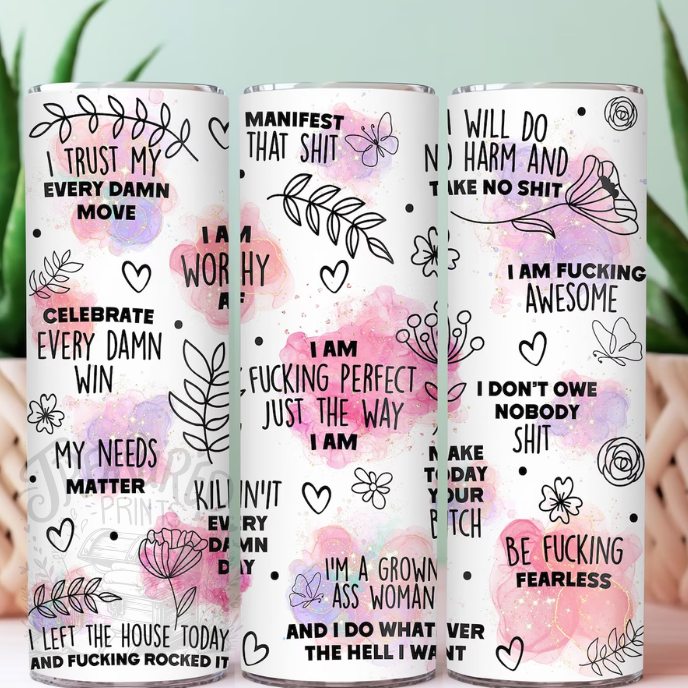 I TRUST MY
EVERY DAMN
MOVE
I AM
WORTHY
AF
CELEBRATE
EVERY DAMN
WIN
MY NEEDS
MATTER
KILLIN'IT
EVERY
DAMN
DAY
I LEFT THE HOUSE TODAY
AND FUCKING ROCKED IT
MANIFEST
THAT SHIT
I AM
FUCKING PERFECT
JUST THE WAY
I AM
I'M A GROWN
ASS WOMAN
AND I DO WHATEVER
THE HELL I WANT
I WILL DO
NO HARM AND
TAKE NO SHIT
I AM FUCKING
AWESOME
I DON'T OWE
NOBODY
SHIT
MAKE
TODAY
YOUR
BITCH
BE FUCKING
FEARLESS
PRINT